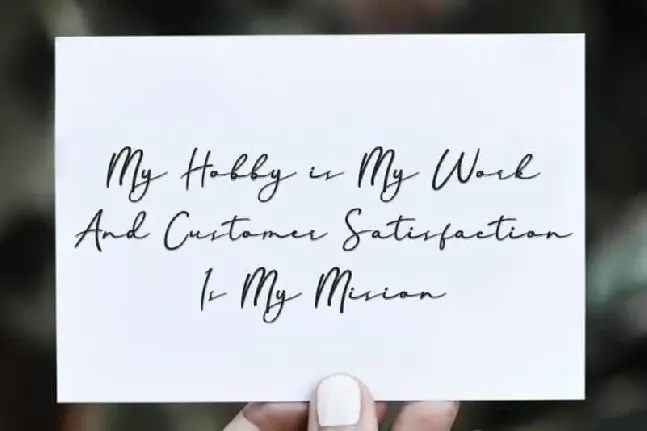 My Hobby is My Work
And Customer Satisfaction
Is My Mision